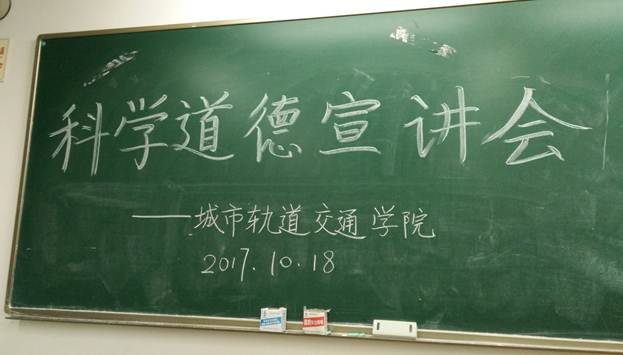 科学道德宣讲会
——城市轨道交通学院
2017.10.18